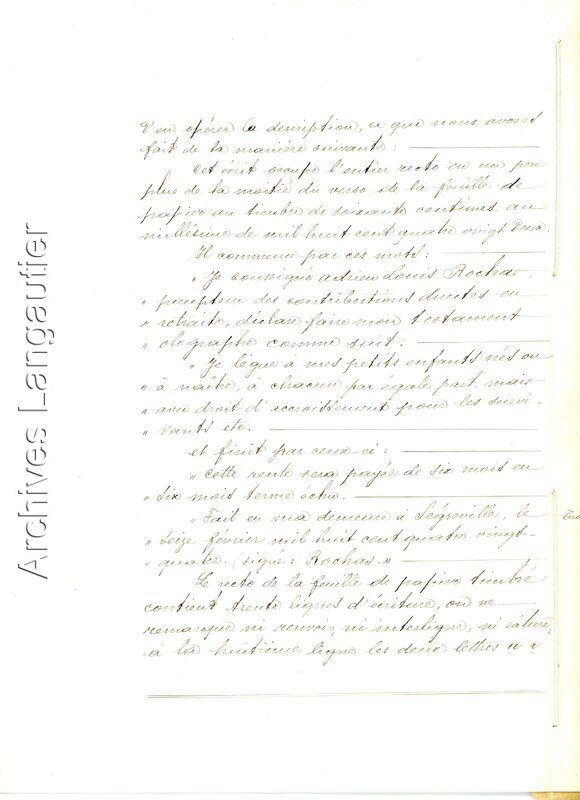 d'en opérer la description, ce que nous avons
fait de la manière suivante :
Cet écrit occupe l'entier recto en un peu
plus de la moitié du verso de la feuille de
papier au timbre de soixante centimes, au
millésime de mil huit cent quatre vingt Deux.
Il commence par ces mots :
" Je soussigné adrien Louis Rochas
" percepteur des contributions directes en
" retraite, déclare faire mon testament
" olographe comme suit.
" Je lègue à mes petits enfants nés ou
" à naître, à chacun par égale part, mais
" avec droit d'accroissement pour les survi-
" vants etc.
et finit par ceux-ci :
" Cette rente sera payée de six mois en
" six mois terme échu.
" Fait en ma demeure à Ségreville, le
" seize février mil huit cent quatre vingt-
" quatre. (signé : Rochas.»
Le recto de la feuille de papier timbré
contient trente lignes d'écriture, on ne
remarque ni renvoi, ni interligne, ni râture,
à la huitième ligne les deux lettres
Archives Langautier